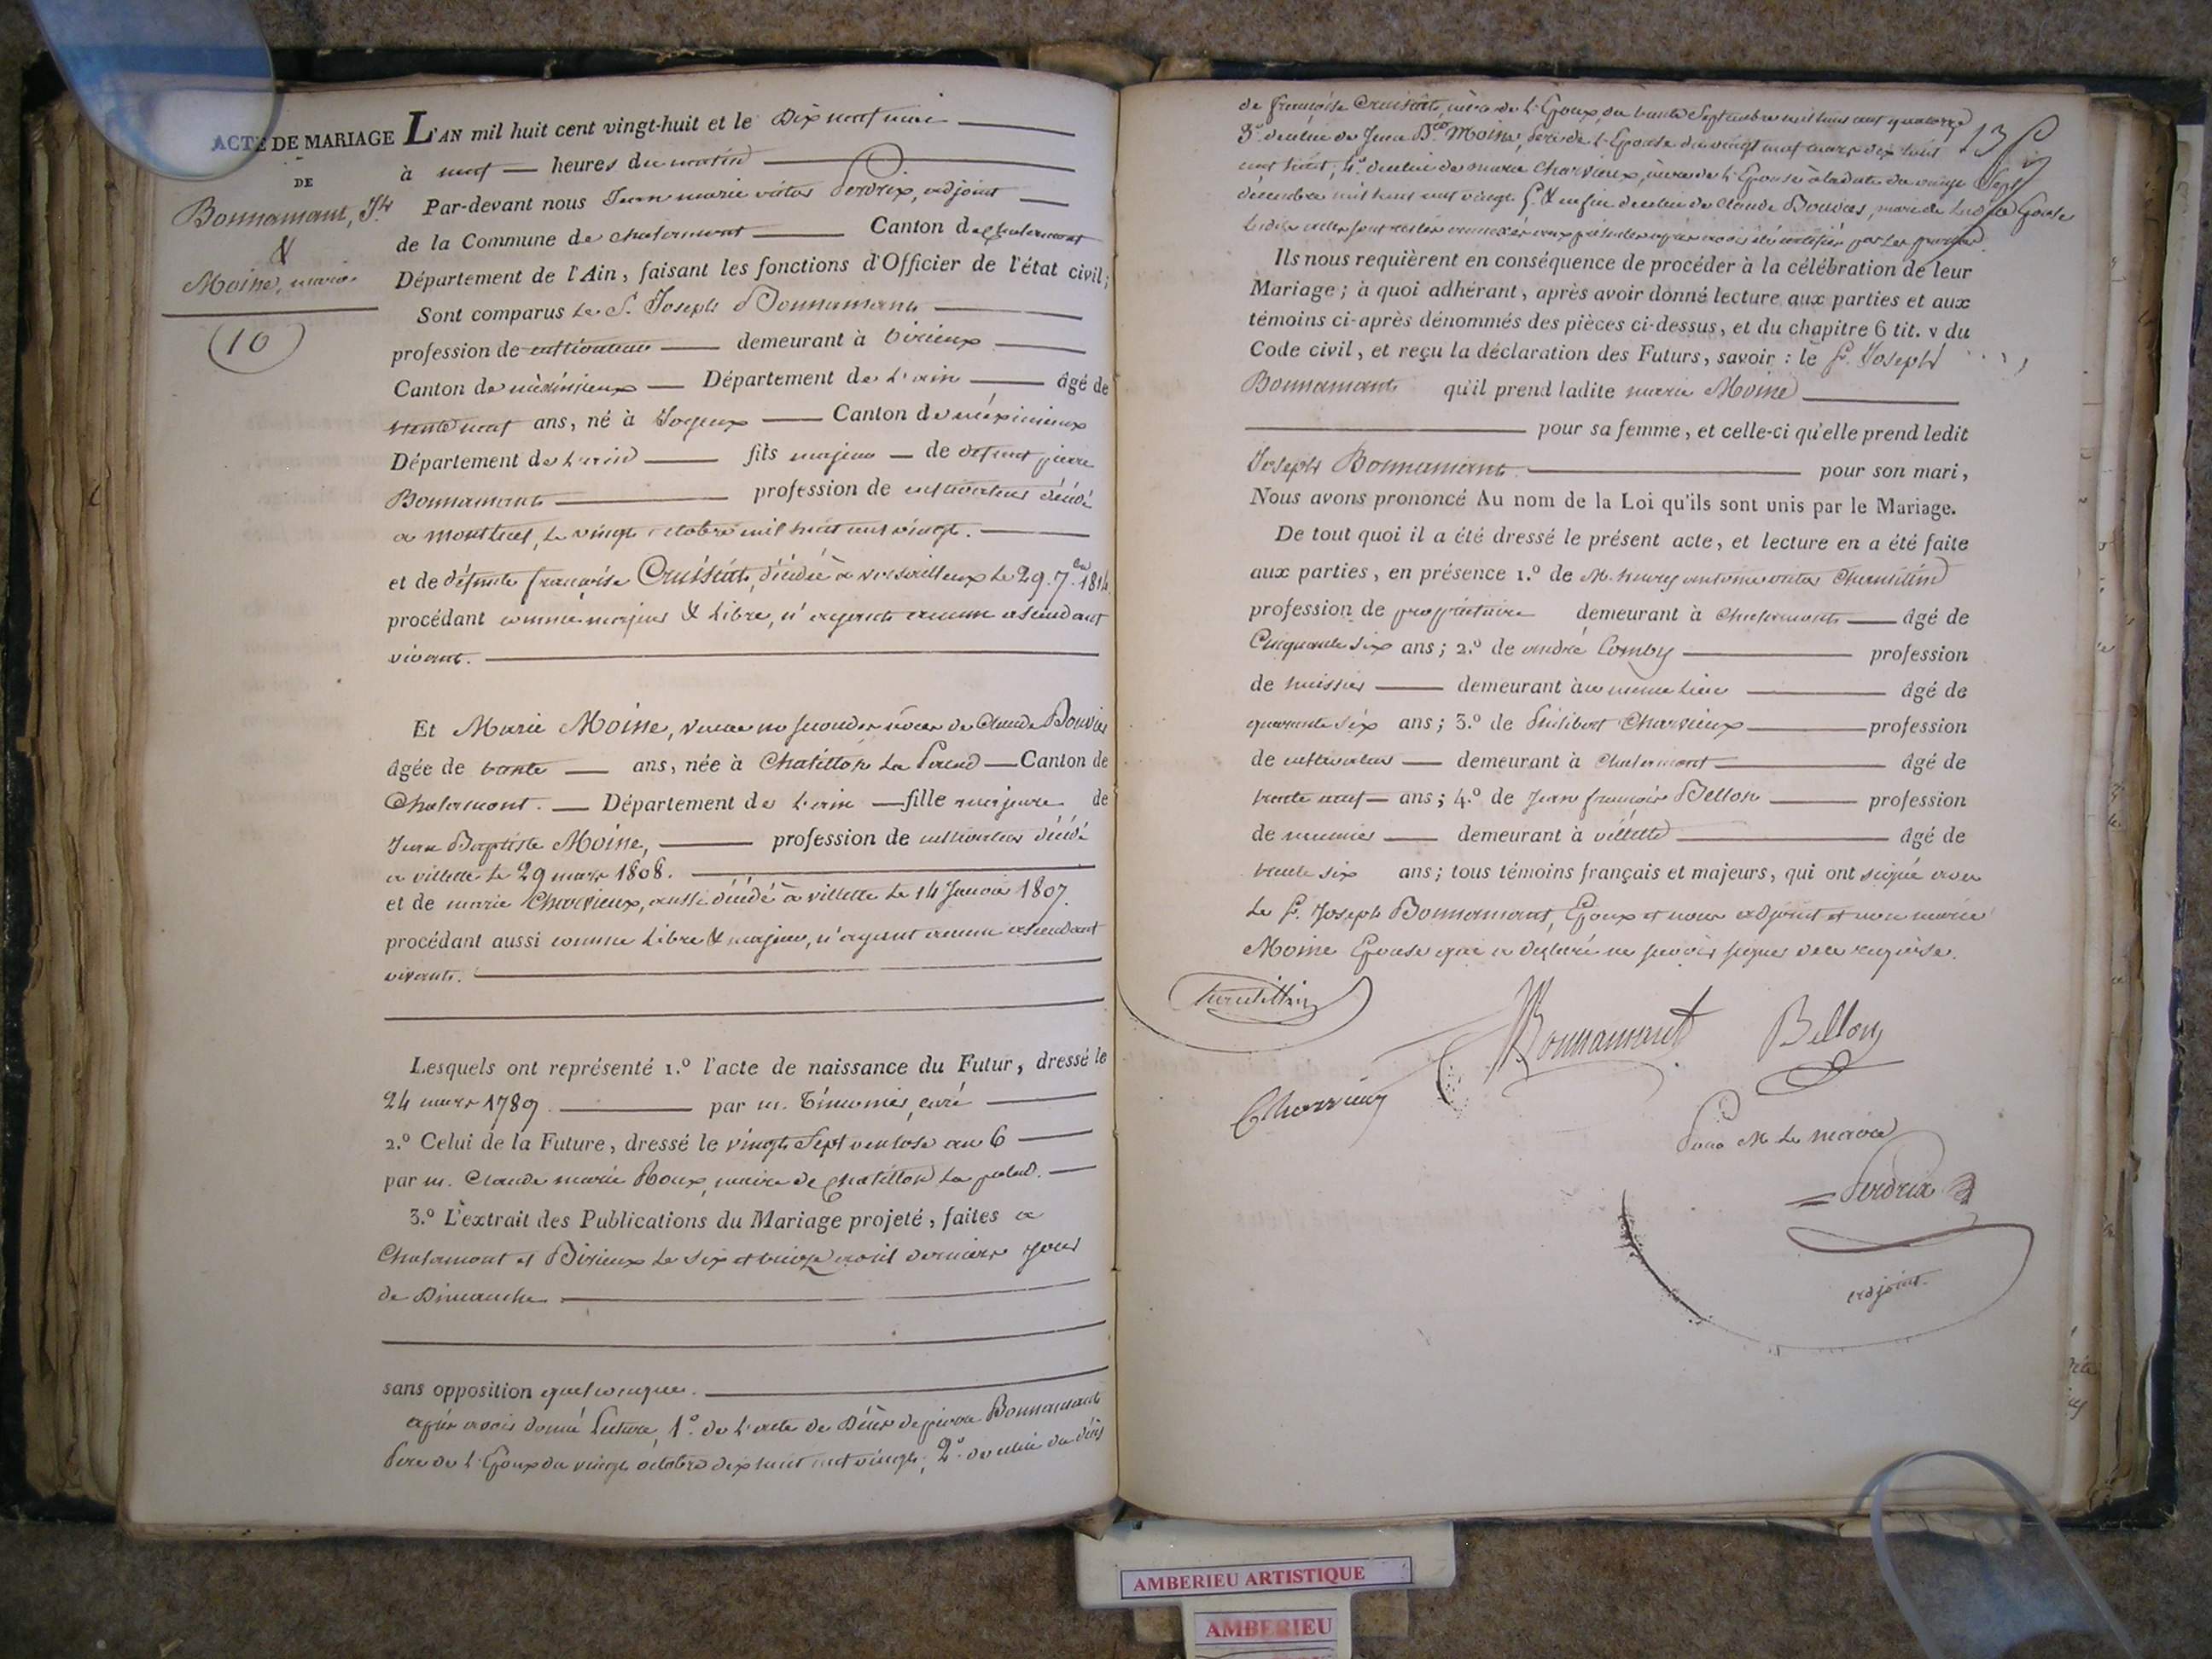 ACTE DE MARIAGE
DE
Bonnamant, Jh
&
Moine, marie
(10)
L'AN mil huit cent vingt-huit et le Dix neuf mai
à neuf heures du matin
Par-devant nous Jean marie victor Perdrix, adjoint
de la Commune de chalamont Canton de chalamont
Département de l'Ain, faisant les fonctions d'Officier de l'état civil;
Sont comparus Le S. Joseph Bonnamant
profession de cultivateur demeurant à Birieux
Canton de méximieux Département de L'ain âgé de
trente neuf ans, né à Joyeux Canton de méximieux
Département de L'ain fils majeur de défunt pierre
Bonnamant profession de cultivateur décédé
a montluel, Le vingt octobre mil huit cent vingt.
et de défunte françoise Cruissiat, décédée à versailleux Le 29. 7.bre 1814
procédant comme majeur & Libre, n'ayant aucun ascendant
vivant.
Et Marie Moine, veuve en secondes noces de Claude Bouvier
âgée de trente ans, née à Chatillon La Palud Canton de
Chalamont. Département de L'ain fille majeure de
Jean Baptiste Moine, profession de cultivateur décédé
a villette Le 29 mars 1808.
et de marie Charvieux, aussi décédé à villette Le 14 Janvier 1807.
procédant aussi comme Libre & majeur, n'ayant aucun ascendant
vivant.
Lesquels ont représenté 1.º l'acte de naissance du Futur, dressé le
24 mars 1789. par m. curé
2.º Celui de la Future, dressé le vingt Sept ventose an 6
par m. Claude marie Roux, maire de chatillon La palud.
3.º L'extrait des Publications du Mariage projeté, faites a
Chalamont et Birieux Le six et treize avril derniers jours
de Dimanche
sans opposition quelconque.
après avoir donné Lecture, 1º. de L'acte de Décès de pierre Bonnamant
Pere de L'Epoux du vingt octobre dix huit cent vingt; 2º. de celui du décès
13
de françoise Cruissiat, mère de L'Epoux, du trente Septembre mil huit cent quatorze
3º. de celui de Jean Bte. Moine, père de L'Epouse du vingt neuf mars dix huit
cent huit; 4º. de celui de marie Charvieux, mère de L'Epouse à la date du vingt Sept
decembre mil huit cent vingt 5. & enfin de celui de Claude Bouvier, mari de Ladite Epouse
Lesdits actes sont restés annexés aux présentes après avoir été certifiés par Les parties.
Ils nous requièrent en conséquence de procéder à la célébration de leur
Mariage; à quoi adhérant, après avoir donné lecture aux parties et aux
témoins ci-après dénommés des pièces ci-dessus, et du chapitre 6 tit. v du
Code civil, et reçu la déclaration des Futurs, savoir: le S. Joseph
Bonnamant qu'il prend ladite marie Moine
pour sa femme, et celle-ci qu'elle prend ledit
Joseph Bonnamant pour son mari,
Nous avons prononcé Au nom de la Loi qu'ils sont unis par le Mariage.
De tout quoi il a été dressé le présent acte, et lecture en a été faite
aux parties, en présence 1.º de M. antoine victor
profession de propriétaire demeurant à Chalamont âgé de
Cinquante six ans; 2.º de andré Comby profession
de huissier demeurant à au même Lieu âgé de
quarante six ans; 3.º de Philibert Charvieux profession
de cultivateur demeurant à Chalamont âgé de
trente neuf ans; 4.º de Jean françois Bellon profession
de meunier demeurant à villette âgé de
trente six ans; tous témoins français et majeurs, qui ont signé avec
Le S. Joseph Bonnamant, Epoux et nous adjoint et non marie
Moine Epouse qui a déclaré ne savoir signer de ce requise.
Bonnamant
Bellon
Charvieux
Pour M. Le maire
Perdrix
adjoint.
AMBERIEU ARTISTIQUE
AMBERIEU